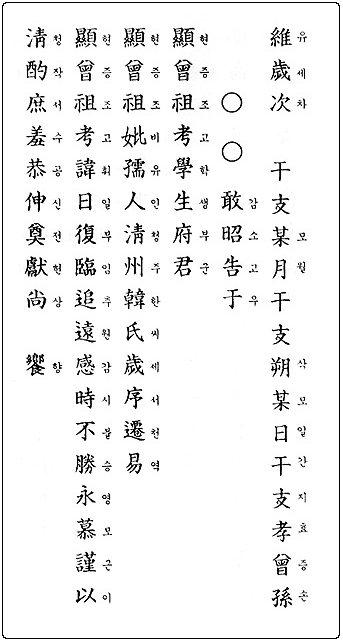 維歲次 干支某月干支朔某日干支孝曾孫
유세차 모월 삭모일간지효증손
○○ 敢昭告于
감소고우
顯曾祖考學生府君
현증조고학생부군
顯曾祖妣孺人淸州韓氏歲序遷易
현증조비유인청주한씨세서천역
顯曾祖考諱日復臨追遠感時不勝永慕謹以
현증조고휘일부임추원감시불승영모근이
淸酌庶羞恭伸奠獻尙 饗
청작서수공신전현상 향